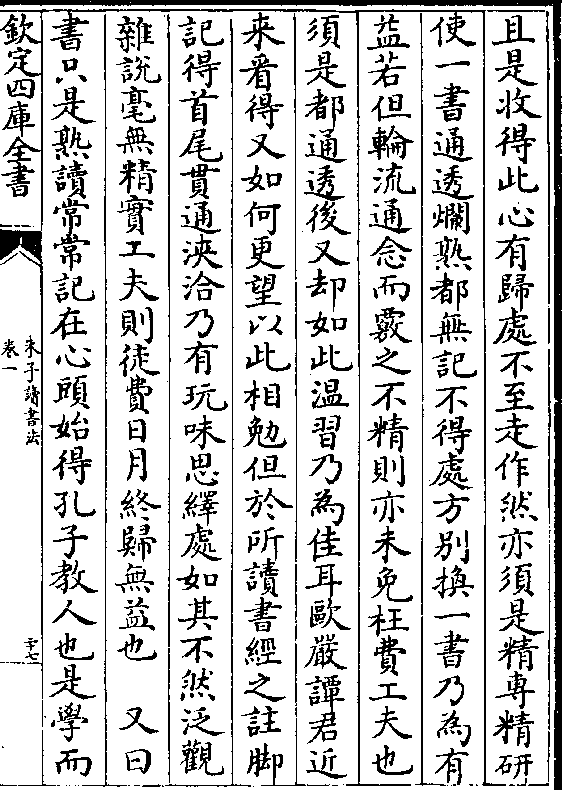 且是收得此心有歸處不至走作然亦須是精專精研
使一書通透爛熟都無記不得處方別換一書乃為有
益若但輪流通念而覈之不精則亦未免枉費工夫也
須是都通透後又却如此温習乃為佳耳歐嚴譚君近
来看得又如何更望以此相勉但於所讀書經之註脚
記得首尾貫通浹洽乃有玩味思繹處如其不然泛觀
雜説毫無精實工夫則徒費日月終歸無益也　又曰
書只是熟讀常常記在心頭始得孔子教人也是學而
欽定四庫全書
朱子讀書法
卷一
二十七